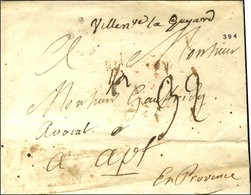 Villen.ve la Guyard
394
A Monsieur
Monsieur
Avocat
a apt
En Provence